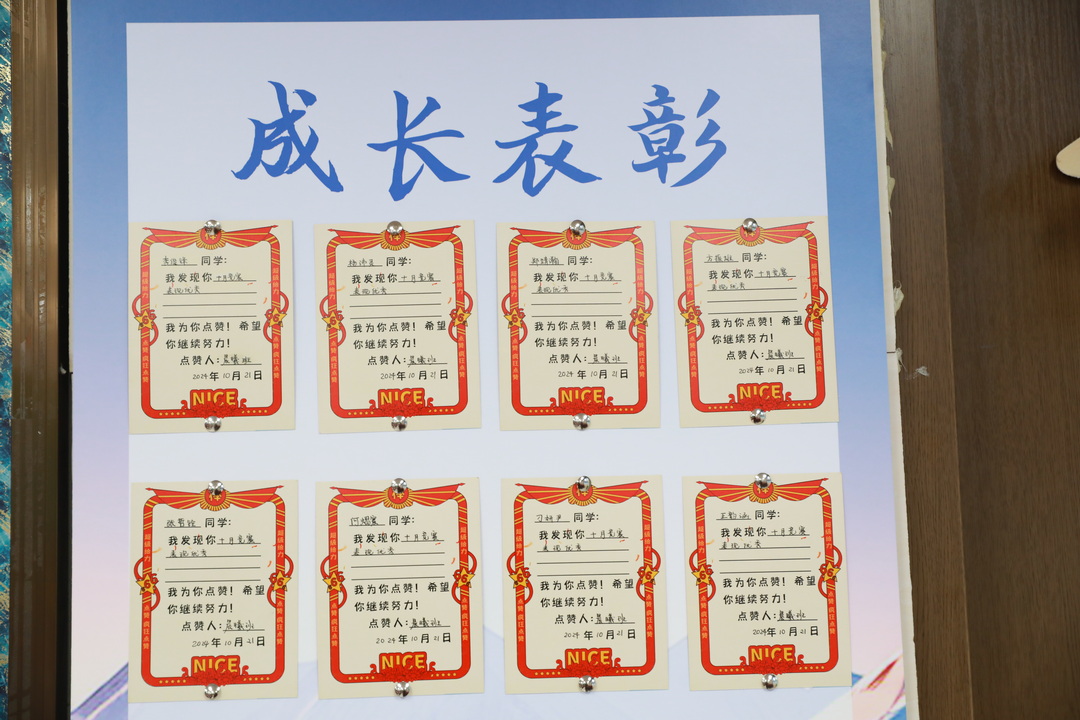 成长表彰
同学:
我发现你十月竞赛
表现优秀
我为你点赞! 希望
你继续努力!
点赞人:晨曦班
2024年10月21日
NICE
同学:
我发现你十月竞赛
表现优秀
我为你点赞! 希望
你继续努力!
点赞人:晨曦班
2024年10月21日
NICE
同学:
我发现你十月竞赛
表现优秀
我为你点赞! 希望
你继续努力!
点赞人:晨曦班
2024年10月21日
NICE
同学:
我发现你十月竞赛
表现优秀
我为你点赞! 希望
你继续努力!
点赞人:晨曦班
2024年10月21日
NICE
同学:
我发现你十月竞赛
表现优秀
我为你点赞! 希望
你继续努力!
点赞人:晨曦班
2024年10月21日
NICE
同学:
我发现你十月竞赛
表现优秀
我为你点赞! 希望
你继续努力!
点赞人:晨曦班
2024年10月21日
NICE
同学:
我发现你十月竞赛
表现优秀
我为你点赞! 希望
你继续努力!
点赞人:晨曦班
2024年10月21日
NICE
王韵涵 同学:
我发现你十月竞赛
表现优秀
我为你点赞! 希望
你继续努力!
点赞人:晨曦班
2024年10月21日
NICE